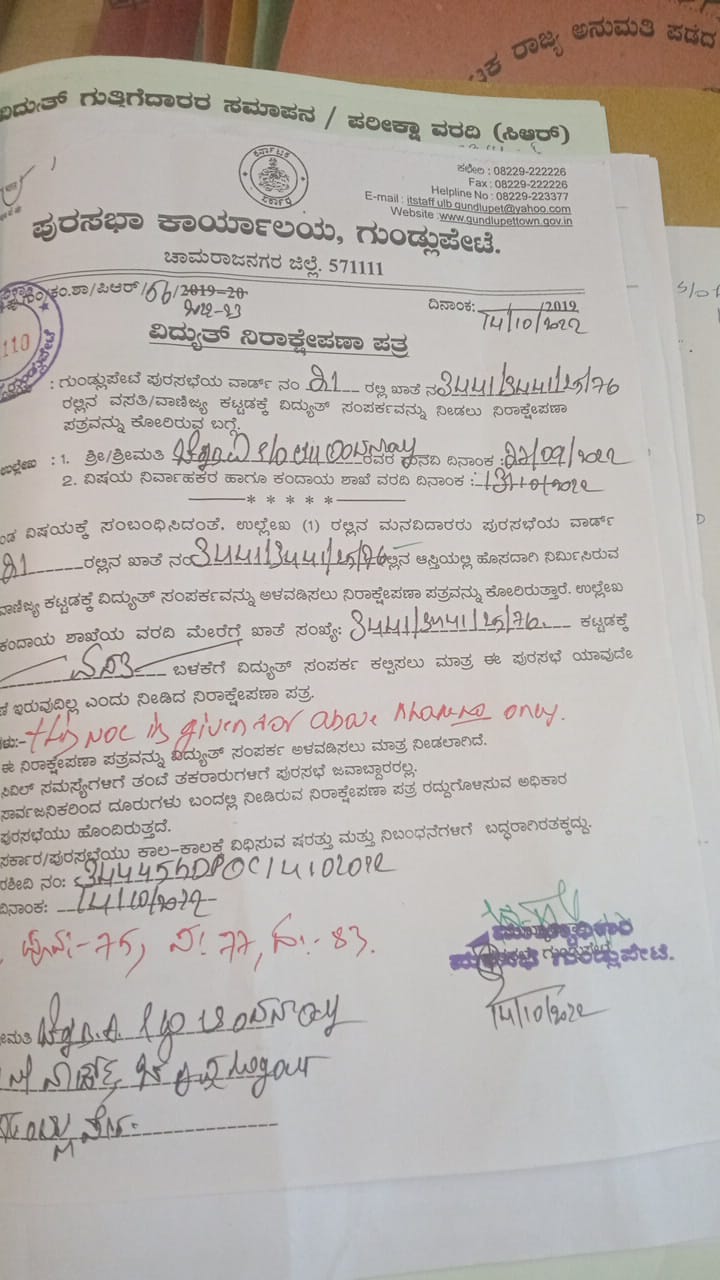 ಕ ರಾಜ್ಯ ಅನುಮತಿ ಪಡೆದ
ವಿದ್ಯುತ್ ಗುತ್ತಿಗೆದಾರರ ಸಮಾಪನ / ಪರೀಕ್ಷಾ ವರದಿ (ಸಿಆರ್)
ಕಛೇರಿ : 08229-222226
Fax : 08229-222226
Helpline No : 08229-223377
E-mail : itstaff ulb gundlupet@yahoo.com
Website :www.gundlupettown.gov.in
ಪುರಸಭಾ ಕಾರ್ಯಾಲಯ, ಗುಂಡ್ಲುಪೇಟೆ.
ಚಾಮರಾಜನಗರ ಜಿಲ್ಲೆ. 571111
ಕಂ.ಶಾ/ಪಿಆರ್/66/2019-20
2022-23
ದಿನಾಂಕ: 2019
14/10/2022
ವಿದ್ಯುತ್ ನಿರಾಕ್ಷೇಪಣಾ ಪತ್ರ
110
: ಗುಂಡ್ಲುಪೇಟೆ ಪುರಸಭೆಯ ವಾರ್ಡ್ ನಂ 21 ರಲ್ಲಿ ಖಾತೆ ನಂ 3441/3441/25/76
ರಲ್ಲಿನ ವಸತಿ/ವಾಣಿಜ್ಯ ಕಟ್ಟಡಕ್ಕೆ ವಿದ್ಯುತ್ ಸಂಪರ್ಕವನ್ನು ನೀಡಲು ನಿರಾಕ್ಷೇಪಣಾ
ಪತ್ರವನ್ನು ಕೋರಿರುವ ಬಗ್ಗೆ.
ಉಲ್ಲೇಖ : 1. ಶ್ರೀ/ಶ್ರೀಮತಿ ರವರ ಮನವಿ ದಿನಾಂಕ :27/09/2022
2. ವಿಷಯ ನಿರ್ವಾಹಕರ ಹಾಗೂ ಕಂದಾಯ ಶಾಖೆ ವರದಿ ದಿನಾಂಕ : 13/10/2022
* * * * *
ಂಡ ವಿಷಯಕ್ಕೆ ಸಂಬಂಧಿಸಿದಂತೆ. ಉಲ್ಲೇಖ (1) ರಲ್ಲಿನ ಮನವಿದಾರರು ಪುರಸಭೆಯ ವಾರ್ಡ್
21 ರಲ್ಲಿನ ಖಾತೆ ನಂ 3441/3441/25/76 ಲ್ಲಿನ ಆಸ್ತಿಯಲ್ಲಿ ಹೊಸದಾಗಿ ನಿರ್ಮಿಸಿರುವ
ವಾಣಿಜ್ಯ ಕಟ್ಟಡಕ್ಕೆ ವಿದ್ಯುತ್ ಸಂಪರ್ಕವನ್ನು ಅಳವಡಿಸಲು ನಿರಾಕ್ಷೇಪಣಾ ಪತ್ರವನ್ನು ಕೋರಿರುತ್ತಾರೆ. ಉಲ್ಲೇಖ
ಕಂದಾಯ ಶಾಖೆಯ ವರದಿ ಮೇರೆಗೆ ಖಾತೆ ಸಂಖ್ಯೆ: 3441/3441/25/76. ಕಟ್ಟಡಕ್ಕೆ
ವಸತಿ ಬಳಕೆಗೆ ವಿದ್ಯುತ್ ಸಂಪರ್ಕ ಕಲ್ಪಿಸಲು ಮಾತ್ರ ಈ ಪುರಸಭೆ ಯಾವುದೇ
ಣೆ ಇರುವುದಿಲ್ಲ ಎಂದು ನೀಡಿದ ನಿರಾಕ್ಷೇಪಣಾ ಪತ್ರ.
ಗಳು:- this NOC is given for above only.
ಈ ನಿರಾಕ್ಷೇಪಣಾ ಪತ್ರವನ್ನು ವಿದ್ಯುತ್ ಸಂಪರ್ಕ ಅಳವಡಿಸಲು ಮಾತ್ರ ನೀಡಲಾಗಿದೆ.
ಸಿವಿಲ್ ಸಮಸ್ಯೆಗಳಿಗೆ ತಂಟೆ ತಕರಾರುಗಳಿಗೆ ಪುರಸಭೆ ಜವಾಬ್ದಾರರಲ್ಲ.
ಸಾರ್ವಜನಿಕರಿಂದ ದೂರುಗಳು ಬಂದಲ್ಲಿ ನೀಡಿರುವ ನಿರಾಕ್ಷೇಪಣಾ ಪತ್ರ ರದ್ದುಗೊಳಿಸುವ ಅಧಿಕಾರ
ಪುರಸಭೆಯು ಹೊಂದಿರುತ್ತದೆ.
ಸರ್ಕಾರ/ಪುರಸಭೆಯು ಕಾಲ-ಕಾಲಕ್ಕೆ ವಿಧಿಸುವ ಷರತ್ತು ಮತ್ತು ನಿಬಂಧನೆಗಳಿಗೆ ಬದ್ಧರಾಗಿರತಕ್ಕದ್ದು.
ರಶೀದಿ ನಂ: 34445
ದಿನಾಂಕ: 14/10/2022
ಪೂ:-75, ಪ: 77, ದ:-83.
ಮುಖ್ಯಾಧಿಕಾರಿ
ಪುರಸಭೆ ಗುಂಡ್ಲುಪೇಟೆ.
14/10/2022
ೀಮತಿ